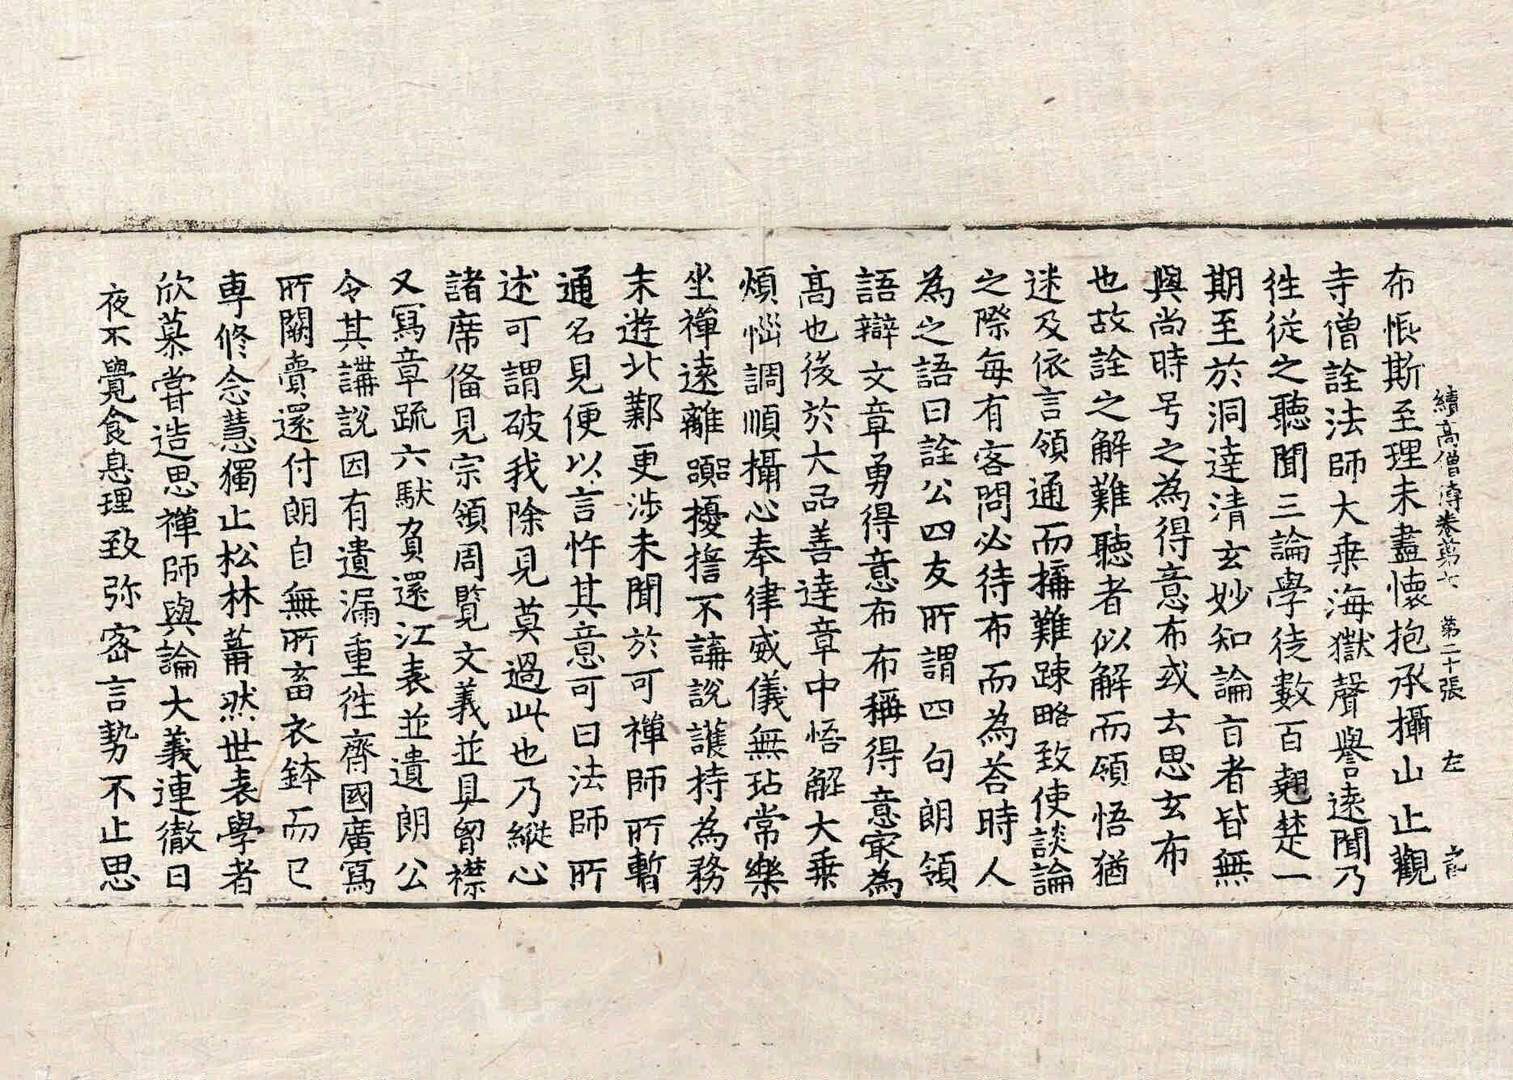 續高僧傳卷第七 第二十張 左
布悵斯至理未盡懷抱承攝山止觀
寺僧詮法師大乗海嶽聲譽遠聞乃
徃従之聽聞三論學徒數百翹楚一
期至於洞達清玄妙知論旨者皆無
與尚時号之為得意布或云思玄布
也故詮之解難聽者似解而領悟猶
迷及依言領通而構難踈略致使談論
之際每有客問必待布而為荅時人
為之語曰詮公四友所謂四句朗領
語辯文章勇得意布布稱得意寂為
髙也後於大品善達章中悟解大乗
煩惱調順攝心奉律威儀無玷常樂
坐禪遠離囂擾誓不講說護持為務
末遊北鄴更涉未聞於可禪師所暫
通名見便以言忤其意可曰法師所
述可謂破我除見莫過此也乃縱心
諸席俻見宗領周覽文義並具胷襟
又寫章䟽六䭾負還江表並遺朗公
令其講說因有遺漏重徃齊國廣寫
所闕賣還付朗自無所畜衣鉢而已
專修念慧獨止松林蕭然世表學者
欣慕嘗造思禪師與論大義連徹日
夜不覺食息理致弥密言勢不止思